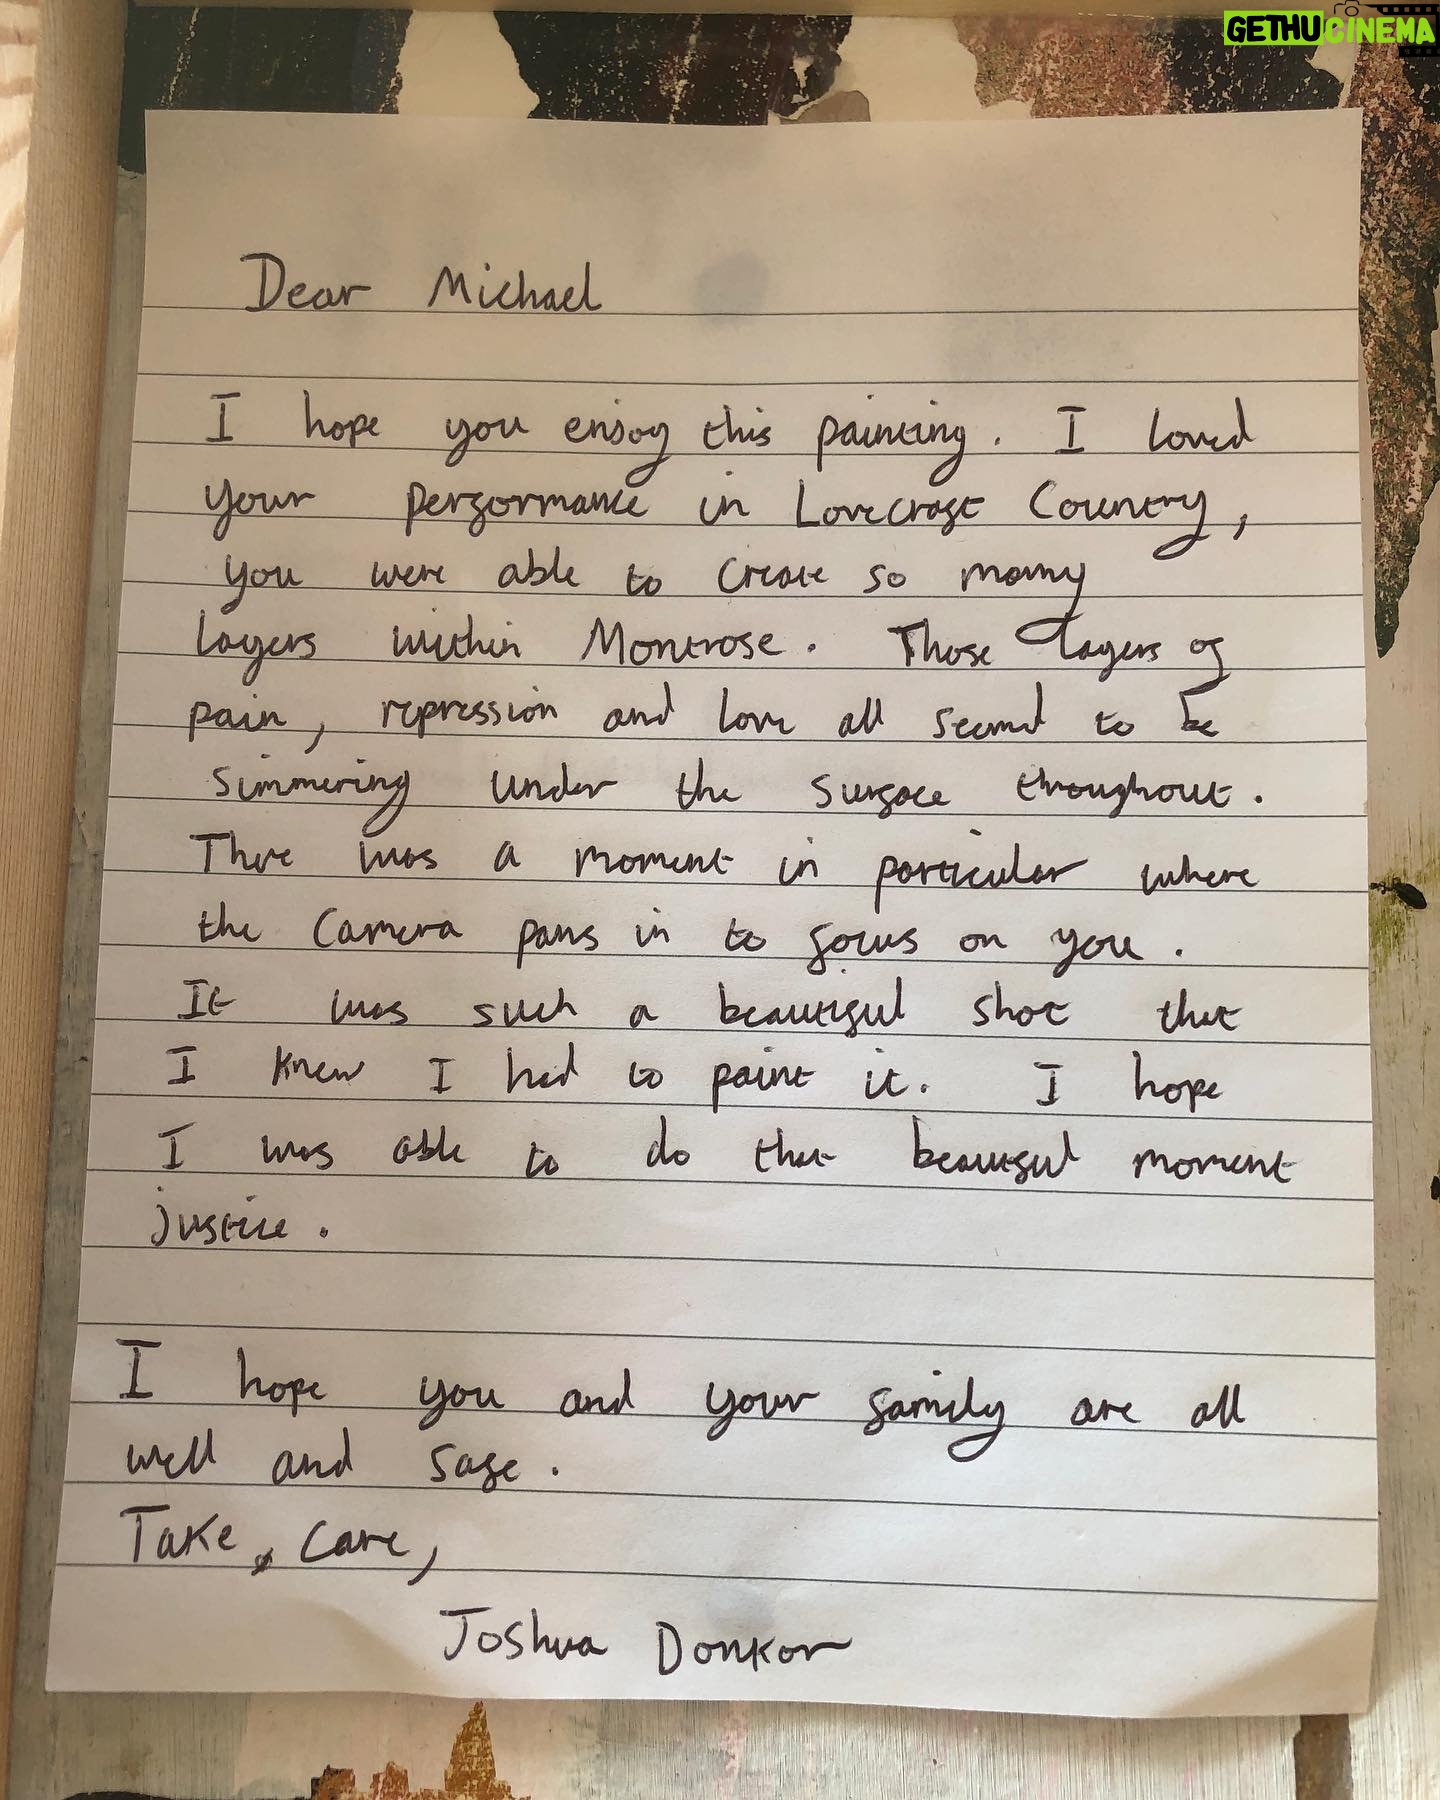 GETHUCINEMA
Dear Michael
I hope you enjoy this painting. I loved
your performance in Lovecraft Country,
you were able to create so many
layers within Montrose. Those layers of
pain, repression and love all seemed to be
simmering under the surface throughout.
There was a moment in particular where
the camera pans in to focus on you.
It was such a beautiful shot that
I knew I had to paint it. I hope
I was able to do that beautiful moment
justice.
I hope you and your family are all
well and safe.
Take, care,
Joshua Donkor